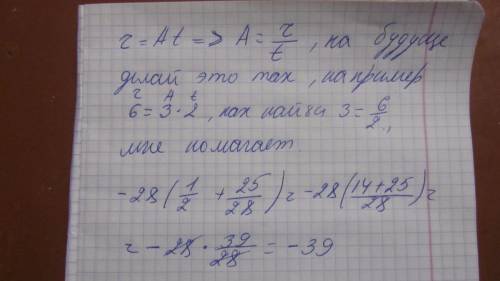 r = At => A = r/t, на будуще
делай это так, например
r A t
6 = 3 · 2, как найти 3 = 6/2,
мне помагает.
-28(1/2 + 25/28) = -28(14+25/28) =
= -28 · 39/28 = -39